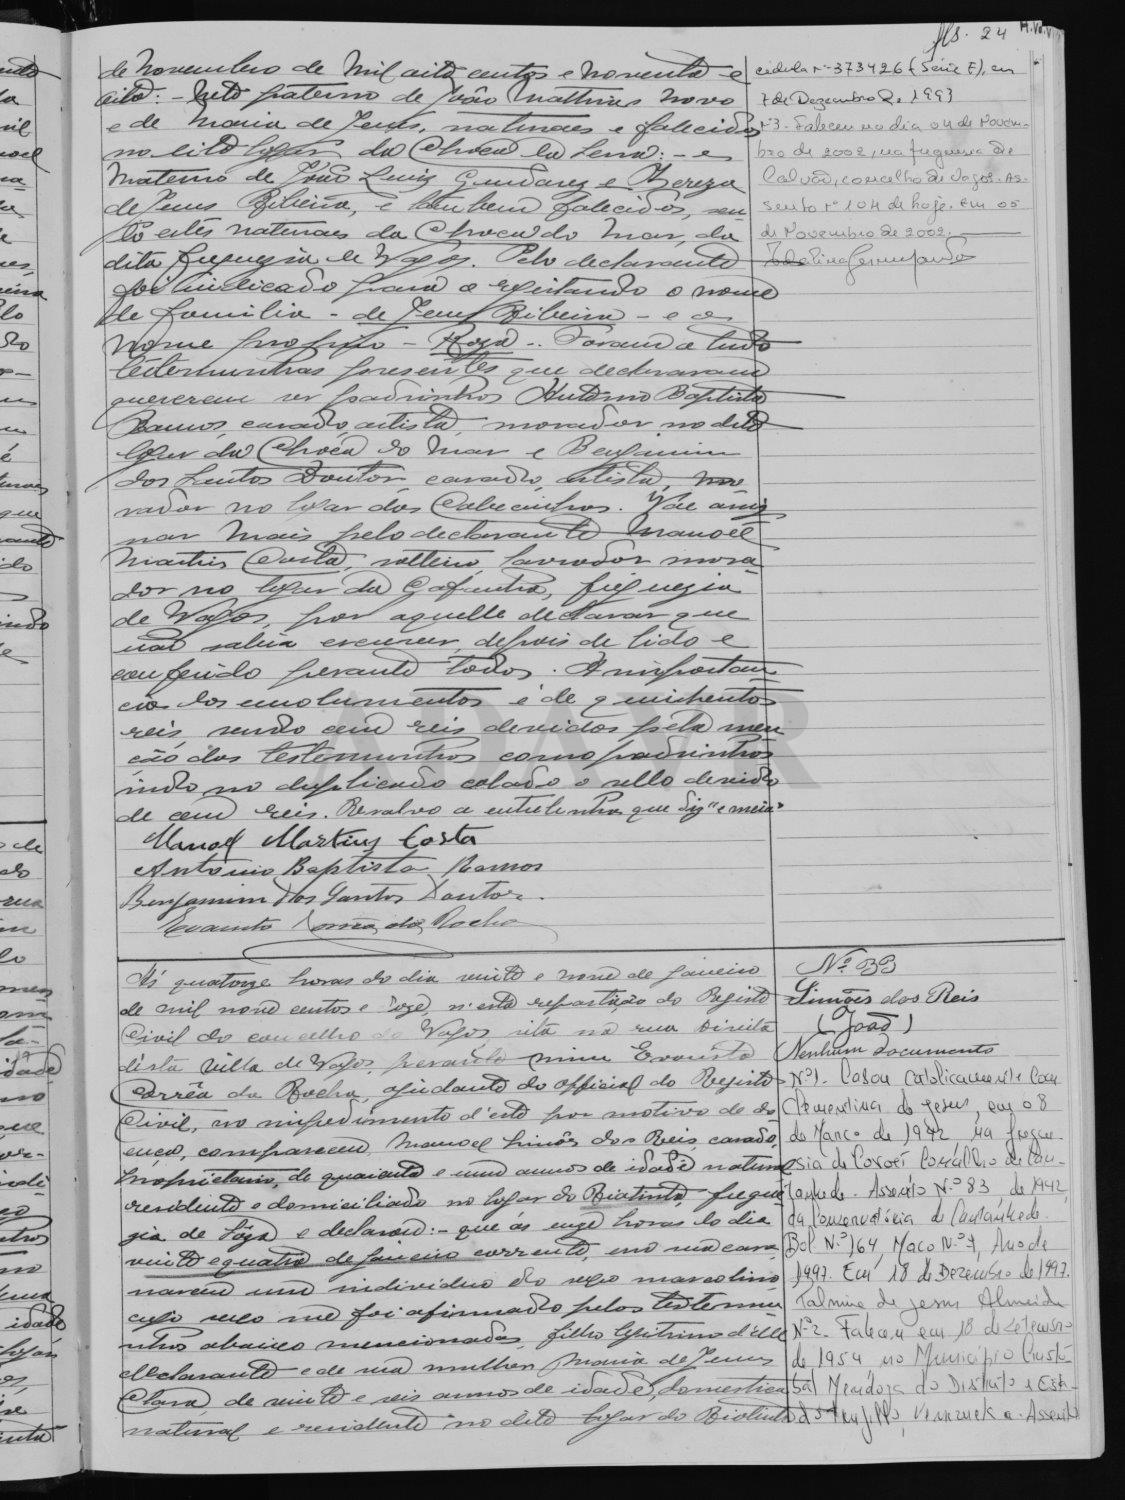 fls. 24
de Novembro de Mil oito centos e noventa e
oito: - Neto paterno de João Mathias Novo
e de Maria de Jesus, naturaes e fallecidos
no dito logar da Choca da Lena: - e
Materno de João Luiz Gundarez e Thereza
de Jesus Ribeira, e tambem fallecidos, sen
do estes naturaes da Choca do Mar, da
dita freguezia de Vagos. Pelo declarante
foi indicado para a registando o nome
de familia - de Jesus Ribeira - e o
nome proprio - Roza -. Foram a tudo
testemunhas presentes que declararam
quererem ser padrinhos Antonio Baptista
Ramos, casado, artista, morador no dito
logar da Choca do Mar e Benjamim
dos Santos Doutor, casado, artista, mo
rador no logar das Cabecinhas. Vae assig
nar mais pelo declarante Manoel
Martins Costa, solteiro, lavrador mora
dor no logar da Gafanha, freguezia
de Vagos, por aquelle declarar que
não sabia escrever, depois de lido e
conferido perante todos. A importan
cia dos emolumentos é de quinhentos
reis sendo cem reis devidos pela men
ção das testemunhas como padrinhos
indo no duplicado colado o sello devido
de cem reis. Resalvo a entrelinha que diz "e meia"
Manoel Martins Costa
Antonio Baptista Ramos
Benjamim dos Santos Doutor.
Evaristo Corrêa da Rocha
cedula nº 373426 (Série F), em
7 de Dezembro de 1993
Nº3. Faleceu no dia 04 de Novem-
bro de 2002, na freguesia de
Calvão, concelho de Vagos. As-
sento nº 104 de hoje. Em 05
de Novembro de 2002.
ADAVR
Ás quatorze horas do dia vinte e nove de Janeiro
de mil nove centos e doze, n'esta repartição do Registo
Civil do concelho de Vagos, sita na rua Direita
d'esta Villa de Vagos, perante mim Evaristo
Corrêa da Rocha, ajudante do official do Registo
Civil, no impedimento d'este por motivo de do
ença, compareceu Manoel Simões dos Reis, casado,
proprietario, de quarenta e um annos de idade natural
residente e domiciliado no logar do Biatinto, fregue
zia de Sóza e declarou: - que ás onze horas do dia
vinte e quatro de Janeiro corrente, em sua casa
nasceu um individuo do sexo masculino
cujo sexo me foi afirmado pelas testemu
nhas abaixo mencionadas, filho legitimo d'elle
declarante e de sua mulher Maria de Jesus
Clara de vinte e seis annos de idade, domestica
natural e residente no dito logar do Biatinto
Nº 33
Simões dos Reis
(João)
Nenhum documento
Nº1. Casou catolicamente com
Clementina de Jesus, em 08
de Março de 1942, na fregue-
sia de Covões Concelho de Can-
tanhede. Assento Nº 83, de 1942,
da Conservatória de Cantanhede.
Bol. Nº 164, Maço Nº 7, Ano de
1997. Em 18 de Dezembro de 1997.
de Jesus Almeida
Nº2. Faleceu em 18 de Setembro
de 1954 no Município Cristó-
bal Mendoza do Distrito e Esta-
do Trujillo, Venezuela. Assento